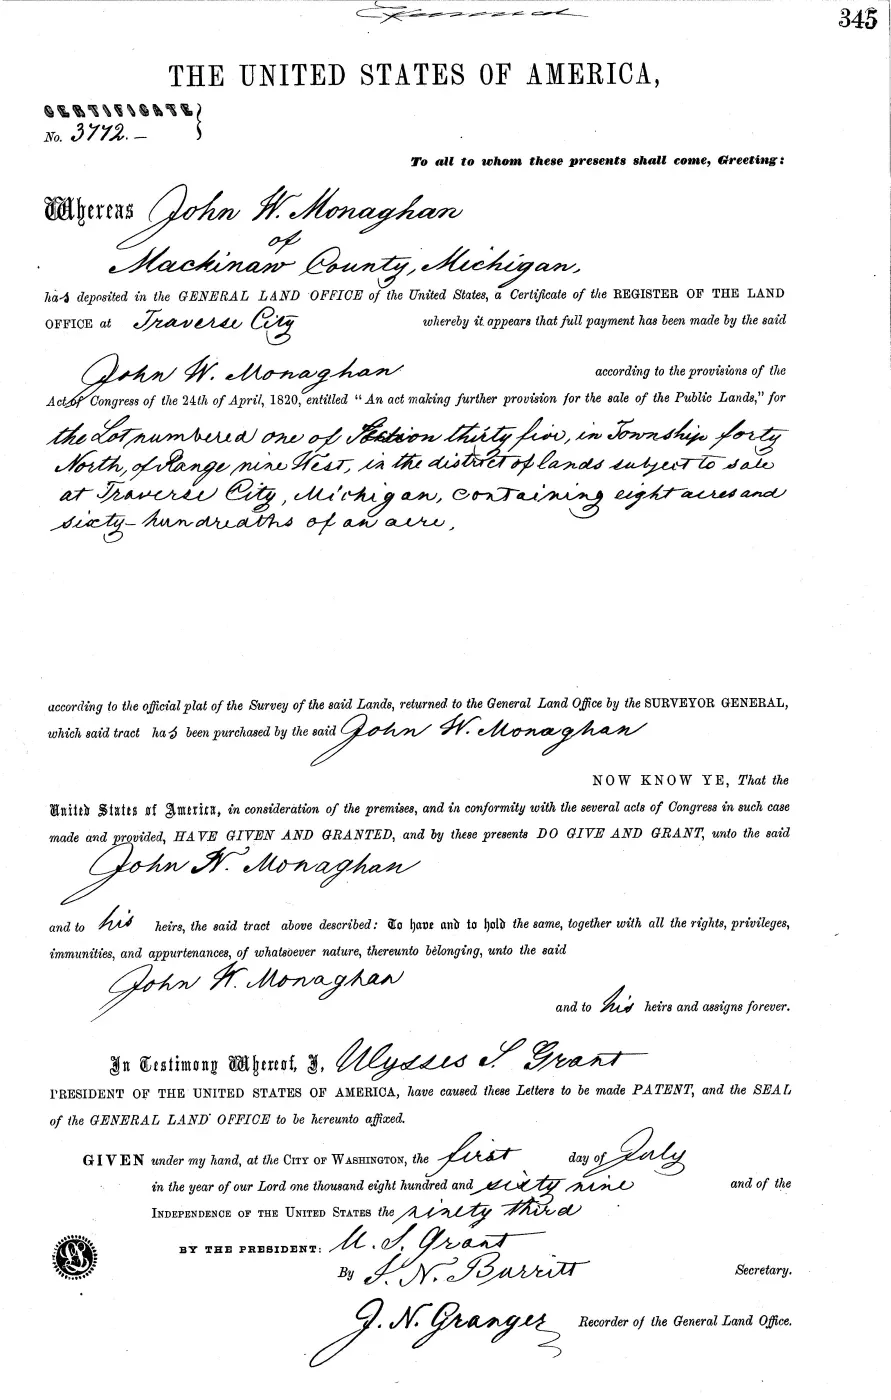 Examined
345
THE UNITED STATES OF AMERICA,
CERTIFICATE
No. 3772.—
To all to whom these presents shall come, Greeting:
Whereas John W. Monaghan
of
Mackinaw County, Michigan,
ha-s deposited in the GENERAL LAND OFFICE of the United States, a Certificate of the REGISTER OF THE LAND
OFFICE at Traverse City whereby it appears that full payment has been made by the said
John W. Monaghan according to the provisions of the
Act of Congress of the 24th of April, 1820, entitled "An act making further provision for the sale of the Public Lands," for
the Lot numbered one of Section thirty five, in Township forty
North, of Range nine West, in the district of lands subject to sale
at Traverse City, Michigan, containing eight acres and
sixty-hundreaths of an acre,
according to the official plat of the Survey of the said Lands, returned to the General Land Office by the SURVEYOR GENERAL,
which said tract has been purchased by the said John W. Monaghan
NOW KNOW YE, That the
United States of America, in consideration of the premises, and in conformity with the several acts of Congress in such case
made and provided, HAVE GIVEN AND GRANTED, and by these presents DO GIVE AND GRANT, unto the said
John W. Monaghan
and to his heirs, the said tract above described: To have and to hold the same, together with all the rights, privileges,
immunities, and appurtenances, of whatsoever nature, thereunto belonging, unto the said
John W. Monaghan
and to his heirs and assigns forever.
In Testimony Whereof, I, Ulysses S. Grant
PRESIDENT OF THE UNITED STATES OF AMERICA, have caused these Letters to be made PATENT, and the SEAL
of the GENERAL LAND OFFICE to be hereunto affixed.
GIVEN under my hand, at the CITY OF WASHINGTON, the first day of July
in the year of our Lord one thousand eight hundred and sixty nine and of the
INDEPENDENCE OF THE UNITED STATES the ninety third
BY THE PRESIDENT: U. S. Grant
By S. N. Burritt Secretary.
J. N. Granger Recorder of the General Land Office.
LS